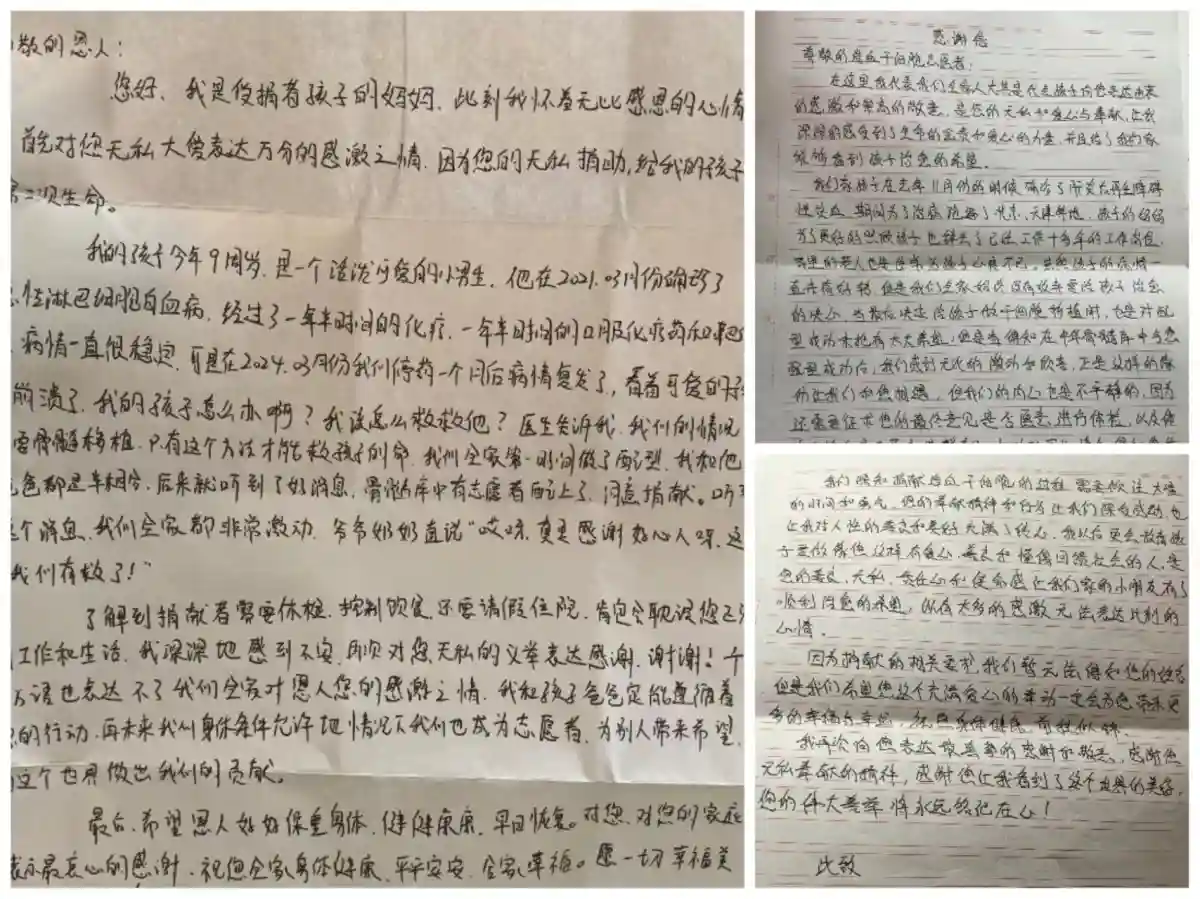 敬的恩人:
您好、我是受捐者孩子的妈妈、此刻我怀着无比感恩的心情
首先对您无私大爱表达万分的感激之情.因为您的无私捐助,给我的孩子
二次生命。
我的孩子今年9周岁.是一个活泼可爱的小男生.他在2021.03月份确诊了
性淋巴细胞白血病.经过了一年半时间的化疗.一年半时间的口服化疗药和
病情一直很稳定.可是在2024.03月份我们停药一个月后病情复发了,看着可爱的
崩溃了.我的孩子怎么办啊?我该怎么救救他?医生告诉我.我们的情况
要骨髓移植.只有这个方法才能救孩子的命.我们全家第一时间做了配型.我和他
爸都是半相合.后来就听到了好消息.骨髓库中有志愿者配上了.同意捐献。听
个消息.我们全家都非常激动.爷爷奶奶直说"哎呀.真是感谢好心人呀.这
我们有救了!"
了解到捐献者需要体检.控制饮食.还要请假住院.肯定会耽误您正
工作和生活.我深深地感到不安.再次对您无私的义举表达感谢.谢谢!千
万语也表达不了我们全家对恩人您的感激之情.我和孩子爸爸定能遵循着
的行动.再未来我们身体条件允许地情况下我们也成为志愿者.为别人带来希望.
这个世界做出我们的贡献。
最后.希望恩人好好保重身体.健健康康.早日恢复。对您.对您的家庭
表示最衷心的感谢.祝您全家身体健康.平平安安.全家幸福。愿一切幸福美
感谢信
尊敬的造血干细胞志愿者:
在这里我代表我们全家人尤其是代表孩子向您表达由衷
的感激和崇高的敬意.是您的无私和爱心与奉献.让我
深深的感受到了生命的宝贵和爱心的力量.并且给了我们家
能够看到孩子治愈的希望。
我们家孩子在去年11月份的时候确诊了
性贫血.期间为了治病跑遍了北京、天津等地.孩子的妈妈
为了更好的照顾孩子也辞去了已经工作十多年的工作岗位.
家里的老人也是
直没有好转.但是我们全家
的决心.当最后决定给孩子做干细胞移植时.也是对配
型成功未抱有太大希望.但是当得知在中华骨髓库中与您
配型成功后.我们感到无比的激动和欣喜.正是这样的缘
份让我们和您相遇.但我们的内心也是不平静的.因为
还需要征求您的最终意见是否愿意进行体检.以及
我们深知捐献造血干细胞的过程需要付出大量
的时间和勇气.您的奉献精神和行为让我们深受感动.也
让我对人性的善良和美好充满了信心.我以后更会教育孩
子要做像您这样有爱心、善良和懂得回馈社会的人.是
您的善良、无私、责任心和使命感让我们家的小朋友有了
顺利治愈的希望.
心情.
因为捐献的相关要求.我们暂无法得知您的姓名
但是我们希望您这个充满爱心的举动一定会为您带来更
多的幸福与幸运.祝您身体健康.前程似锦.
我再次向您表达最真挚的感谢和敬意.感谢您
无私奉献的精神.感谢您让我看到了这个世界的美好.
您的伟大善举将永远铭记在心!
此致